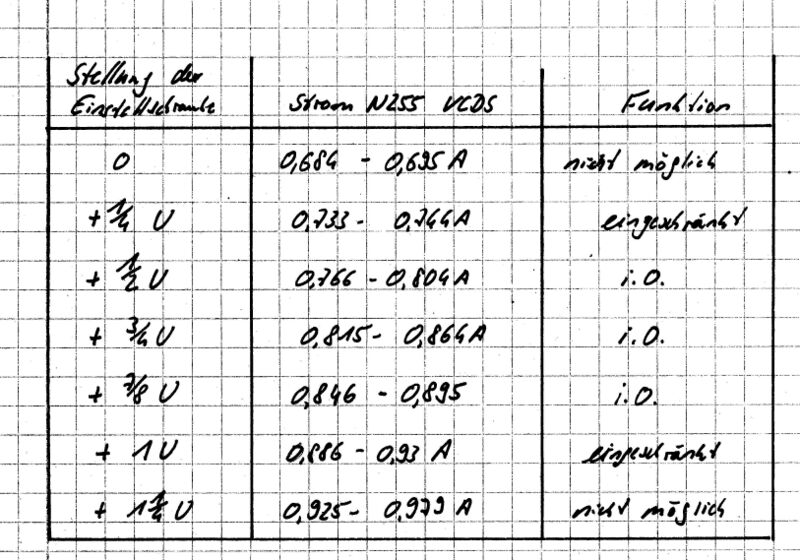 Stellung der
Einstellschraube Strom N255 VCDS Funktion
0 0,684 - 0,695 A nicht möglich
+ 1/4 U 0,733 - 0,744 A eingeschränkt
+ 1/2 U 0,766 - 0,804 A i.O.
+ 3/4 U 0,815 - 0,864 A i.O.
+ 7/8 U 0,846 - 0,895 i.O.
+ 1 U 0,886 - 0,93 A eingeschränkt
+ 1 1/4 U 0,925 - 0,979 A nicht möglich